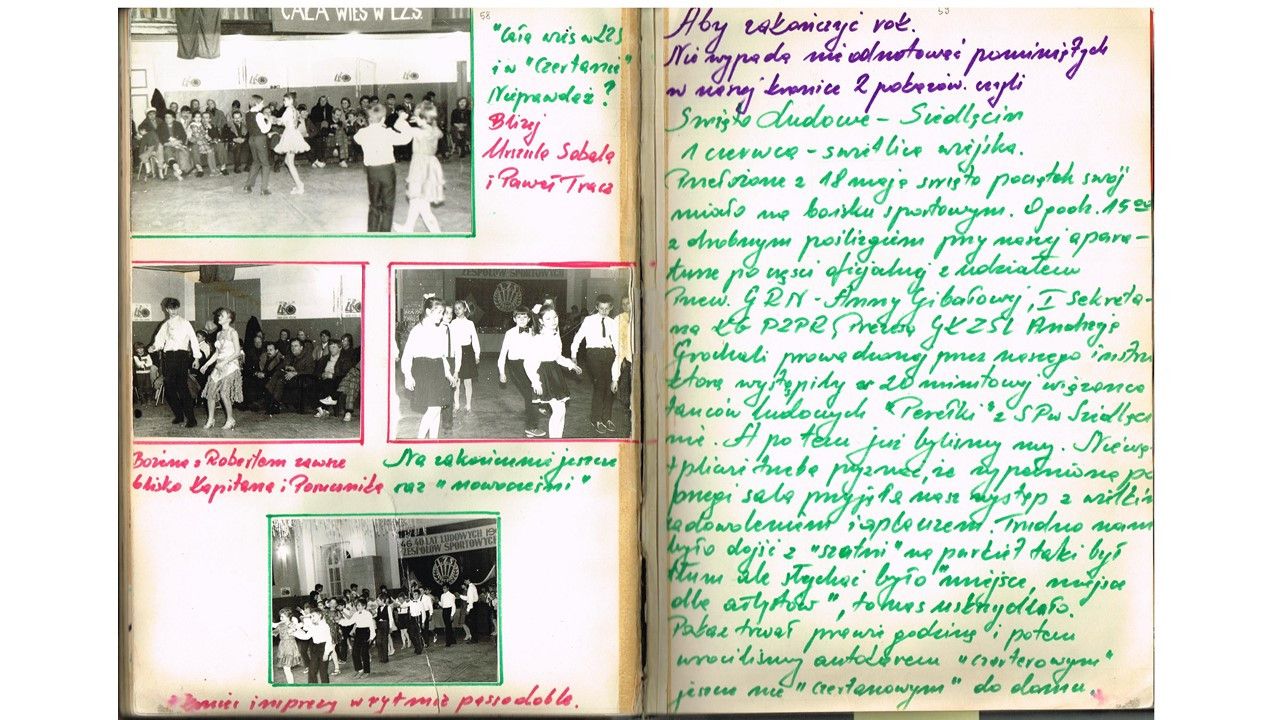 CAŁA WIEŚ W LZS.
58
"Cała wieś w LZS
i w "Czertanie"
Nieprawdaż?
Bliżej
Urszula Sobala
i Paweł Tracz
ZESPOŁÓW SPORTOWYCH
Bożena z Robertem zawsze
blisko Kapitana i Porucznika
Na zakończenie jeszcze
raz "nowocześni"
40 LAT LUDOWYCH
ZESPOŁÓW SPORTOWYCH
imprezy w rytmie passodoble.
59
Aby zakończyć rok.
Nie wypada nie odnotować pominiętych
w naszej kronice 2 pokazów. czyli
Święto Ludowe - Siedlęcin
1 czerwca - świetlica wiejska.
Przełożone z 18 maja święto początek swój
miało na boisku sportowym. O godz. 15 00
z drobnym poślizgiem przy naszej apara-
turze po części oficjalnej z udziałem
Przew. GRN - Anny Gibałowej, I Sekreta-
rza KG PZPR, Prezesa GKZSL Andrzeja
Grochali prowadzonej przez naszego instru
ktora wystąpiły w 20 minutowej wiązance
tańców ludowych "Perełki" z SP w Siedlęci
nie. A potem już byliśmy my. Niewą-
tpliwie trzeba przyznać, że wypełniona po
brzegi sala przyjęła nasz występ z wielkim
zadowoleniem i aplauzem. Trudno nam
było dojść z "szatni" na parkiet taki był
tłum ale słychać było "miejsce, miejsce
dla artystów", to nas uskrzydlało.
Pokaz trwał prawie godzinę i potem
wróciliśmy autokarem "czarterowym"
jeszcze nie "czertanowym" do domu.